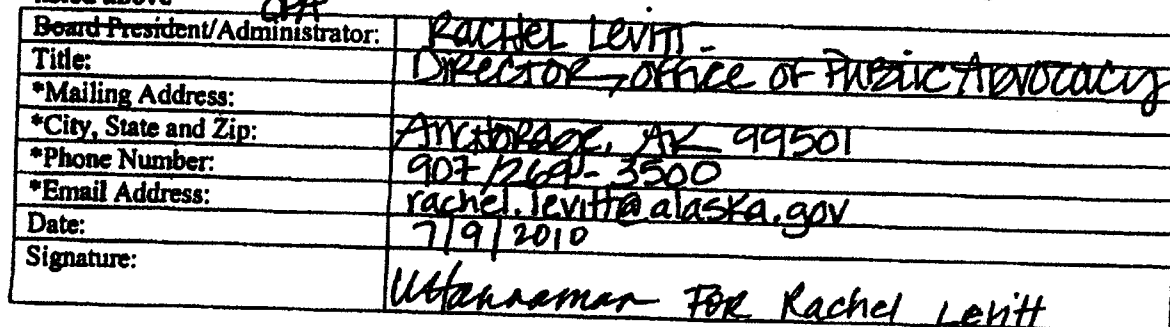 listed above
OPA
Board President/Administrator: Rachel Levitt
Title: Director, Office of Public Advocacy
*Mailing Address:
*City, State and Zip: Anchorage, AK 99501
*Phone Number: 907/269-3500
*Email Address: rachel.levitt@alaska.gov
Date: 7/9/2010
Signature: For Rachel Levitt